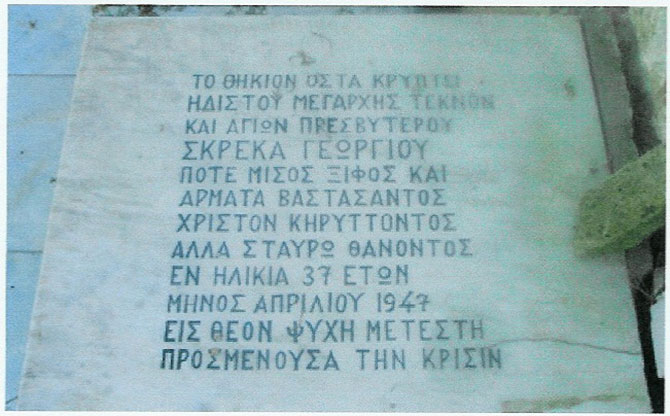 ΤΟ ΘΗΚΙΟΝ ΟΣΤΑ ΚΡΥΠΤΕΙ
ΗΔΙΣΤΟΥ ΜΕΓΑΡΧΗΣ ΤΕΚΝΩΝ
ΚΑΙ ΑΓΙΩΝ ΠΡΕΣΒΥΤΕΡΟΥ
ΣΚΡΕΚΑ ΓΕΩΡΓΙΟΥ
ΠΟΤΕ ΜΙΣΟΣ ΞΙΦΟΣ ΚΑΙ
ΑΡΜΑΤΑ ΒΑΣΤΑΣΑΝΤΟΣ
ΧΡΙΣΤΟΝ ΚΗΡΥΤΤΟΝΤΟΣ
ΑΛΛΑ ΣΤΑΥΡΩ ΘΑΝΟΝΤΟΣ
ΕΝ ΗΛΙΚΙΑ 37 ΕΤΩΝ
ΜΗΝΟΣ ΑΠΡΙΛΙΟΥ 1947
ΕΙΣ ΘΕΟΝ ΨΥΧΗ ΜΕΤΕΣΤΗ
ΠΡΟΣΜΕΝΟΥΣΑ ΤΗΝ ΚΡΙΣΙΝ